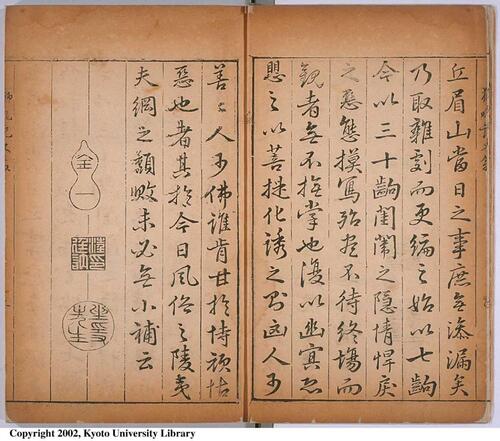 丘眉山當日之事庶無滲漏矣
乃取雜劇而更編之始以七齣
今以三十齣閨閫之隱情悍戾
之惡態摸寫殆盡不待終場而
觀者無不撫掌也復以幽冥恐
之以菩提化誘之則凶人可
善善人可佛誰肯甘於恃頑怙
惡也者其於今日風俗之陵夷
夫綱之頹敗未必無小補云
全一
坐隱先生
Copyright 2002, Kyoto University Library